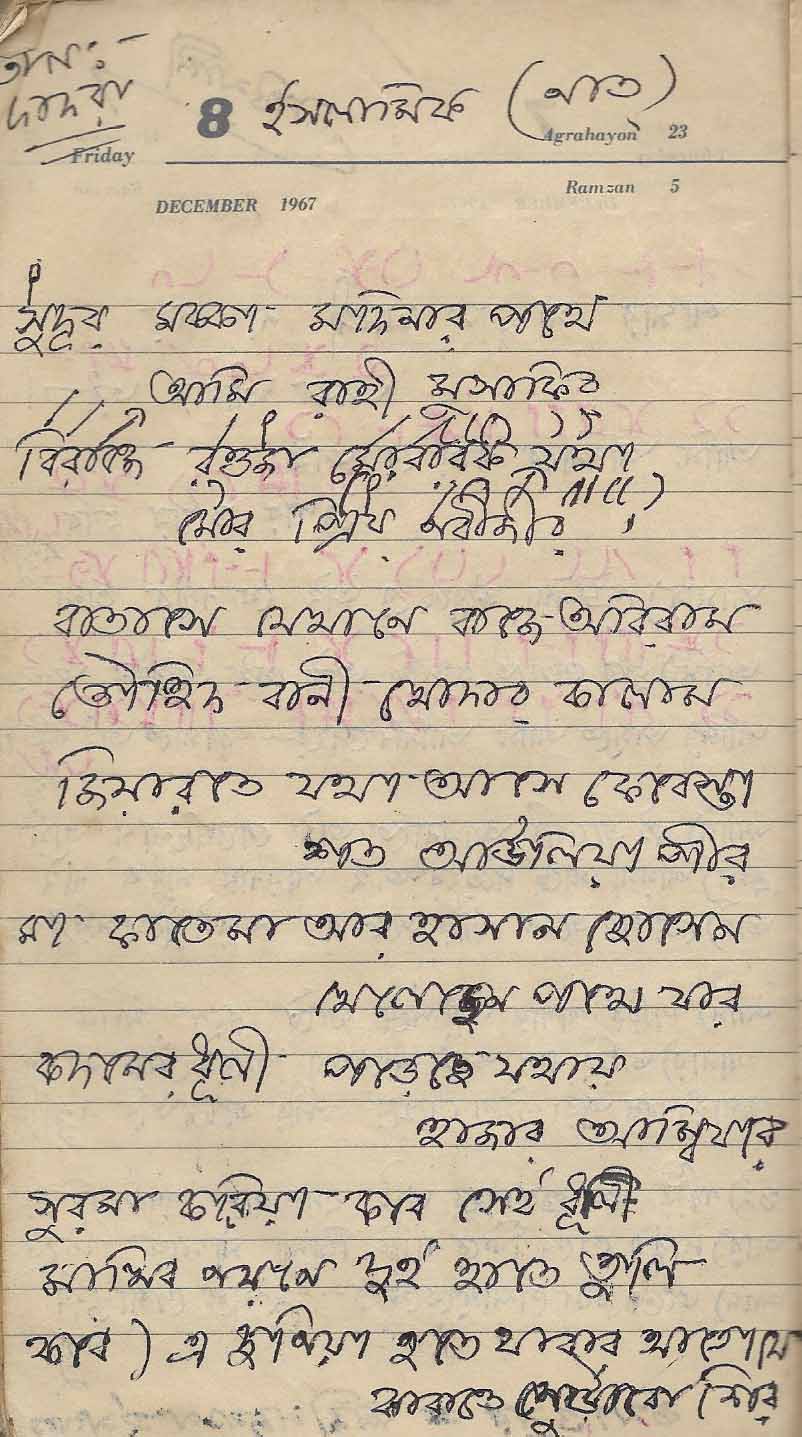 তাল:-
দাদরা
8 ইসলামিক (নাত)
Agrahayon 23
Friday
Ramzan 5
DECEMBER 1967
সুদূর মক্কা মদিনার পথে
আমি রাহী মুসাফির
বিরাজে রওজা মোবারক যথা
মোর প্রিয় নবীজীর
বাতাসে যেখানে বাজে অবিরাম
তৌহিদ বানী খোদার কালাম
জিয়ারতে যথা আসে ফেরেস্তা
শত আউলিয়া পীর
মা ফাতেমা আর হাসান হোসেন
খেলেছেন পথে যার
কদমের ধূলী পড়েছে যথায়
হাজার আম্বিয়ার
সুরমা করিয়া কবে সেই ধূলী
মাখিব নয়নে দুই হাতে তুলি
কবে এ দুনিয়া হতে যাবার আগে
কাবাতে শির